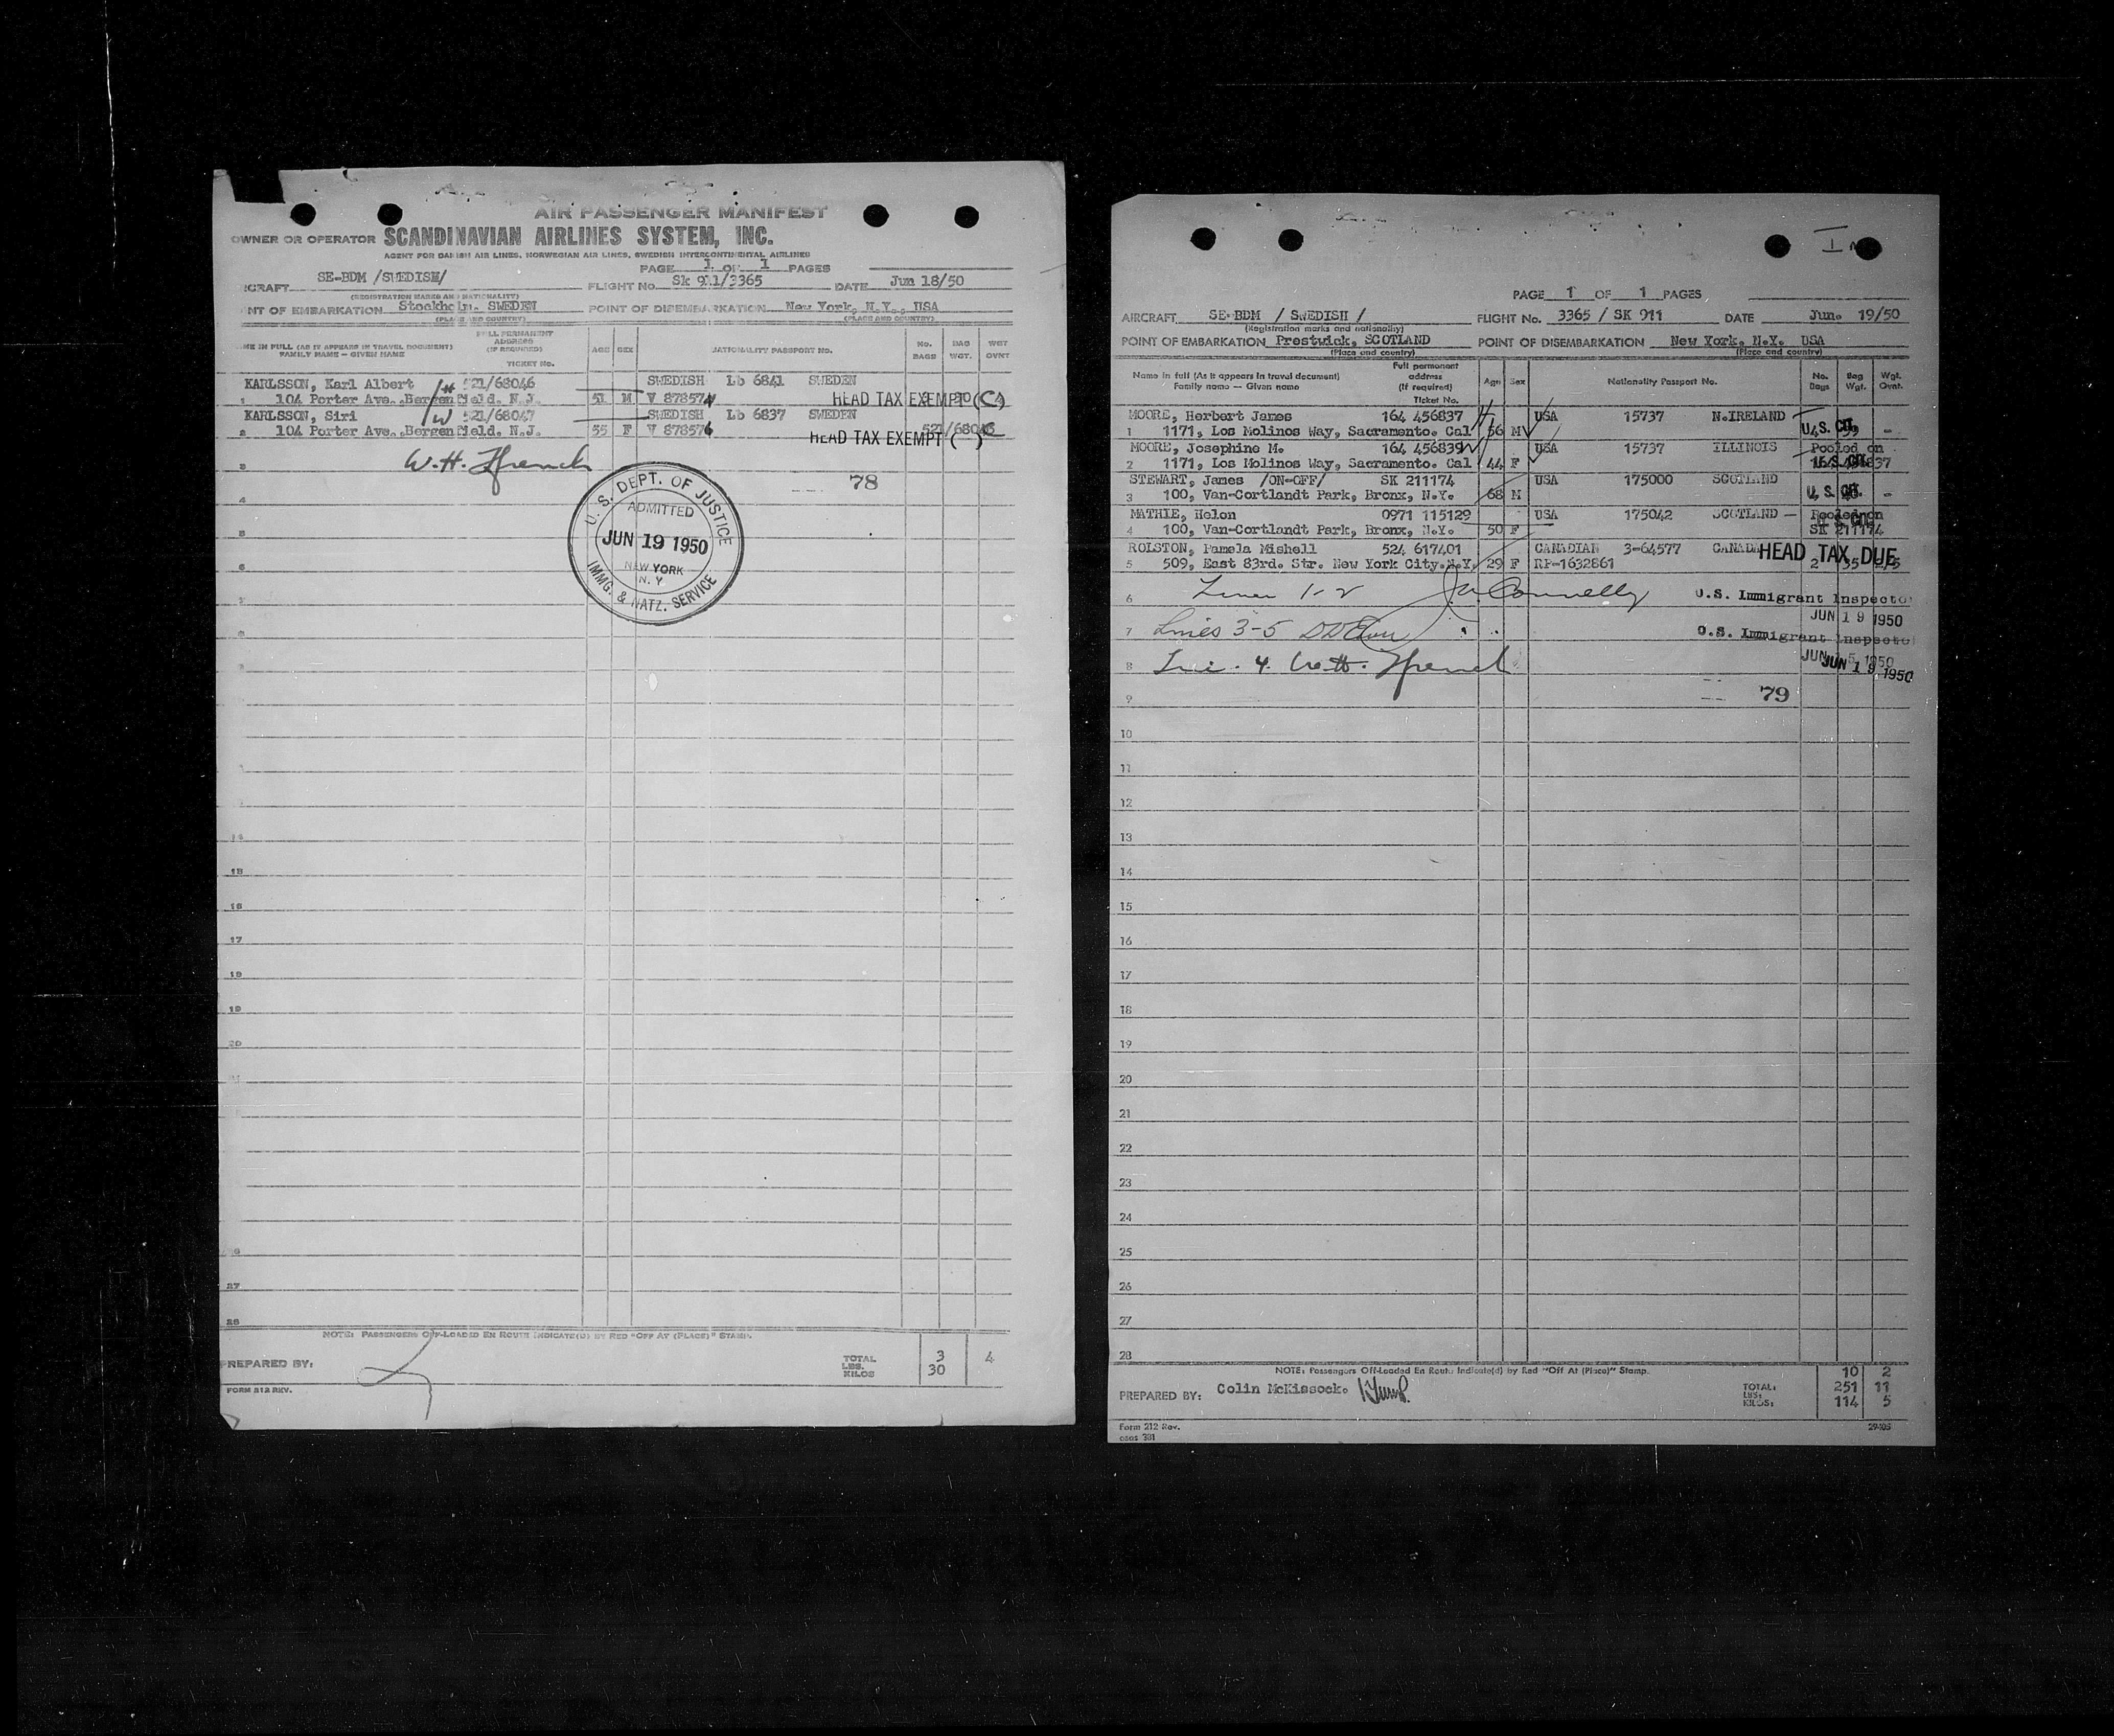 AIR PASSENGER MANIFEST
OWNER OR OPERATOR SCANDINAVIAN AIRLINES SYSTEM, INC.
AGENT FOR DANISH AIR LINES, NORWEGIAN AIR LINES, SWEDISH INTERCONTINENTAL AIRLINES
PAGE 1 OF 1 PAGES
CRAFT SE-BDM /SWEDISH/ FLIGHT No. Sk 911/3365 DATE Jun 18/50
(REGISTRATION MARKS AND NATIONALITY)
NT OF EMBARKATION Stockholm. SWEDEN POINT OF DISEMBARKATION New York, N.Y., USA
(PLACE AND COUNTRY) (PLACE AND COUNTRY)
ME IN FULL (AS IT APPEARS IN TRAVEL DOCUMENT) FAMILY NAME — GIVEN NAME FULL PERMANENT ADDRESS (IF REQUIRED) TICKET No. AGE SEX NATIONALITY PASSPORT NO. NO. BAGS BAG WGT. WGT OVNT
KARLSSON, Karl Albert H 521/68046 SWEDISH Lb 6841 SWEDEN
1 104 Porter Ave.,Bergenfield. N.J. 51 M V 878574 HEAD TAX EXEMPT (C)
KARLSSON, Siri W 521/68047 SWEDISH Lb 6837 SWEDEN
2 104 Porter Ave.,Bergenfield. N.J. 55 F V 878576 HEAD TAX EXEMPT ( ) 521/68046
3 W.H. French
78
4
5
6
U. S. DEPT. OF JUSTICE
ADMITTED
JUN 19 1950
NEW YORK
N. Y.
IMMG. & NATZ. SERVICE
17
19
20
27
28
NOTE: PASSENGERS OFF-LOADED EN ROUTE INDICATE(D) BY RED "OFF AT (PLACE)" STAMP.
PREPARED BY: TOTAL LBS. KILOS 3 30 4
FORM 212 REV.
PAGE 1 OF 1 PAGES
AIRCRAFT SE-BDM / SWEDISH / FLIGHT No. 3365 / SK 911 DATE Jun. 19/50
(Registration marks and nationality)
POINT OF EMBARKATION Prestwick, SCOTLAND POINT OF DISEMBARKATION New York. N.Y. USA
(Place and country) (Place and country)
Name in full (As it appears in travel document) Family name — Given name Full permanent address (If required) Ticket No. Age Sex Nationality Passport No. No. Bags Bag Wgt. Wgt. Ovnt.
MOORE, Herbert James 164 456837 H USA 15737 N.IRELAND
1 1171, Los Molinos Way, Sacramento. Cal 56 M U.S. CIT. -
MOORE, Josephine M. 164 456839 W USA 15737 ILLINOIS Pooled on
2 1171, Los Molinos Way, Sacramento. Cal 44 F 164 456837 U.S. CIT.
STEWART, James /ON-OFF/ SK 211174 USA 175000 SCOTLAND
3 100, Van-Cortlandt Park, Bronx, N.Y. 68 M U.S. CIT. -
MATHIE, Helen 0971 115129 USA 175042 SCOTLAND — Pooled on
4 100, Van-Cortlandt Park, Bronx, N.Y. 50 F SK 211174
ROLSTON, Pamela Mishell 524 617401 CANADIAN 3-64577 CANADA HEAD TAX DUE
5 509, East 83rd. Str. New York City.N.Y. 29 F RP-1632861 2 35
6 Lines 1-2 Connelly U.S. Immigrant Inspector
JUN 19 1950
7 Lines 3-5 U.S. Immigrant Inspector
8 4. W.H. French JUN 19 1950
9 79
10
11
12
13
14
15
16
17
18
19
20
21
22
23
24
25
26
27
28
NOTE: Passengers Off-Loaded En Route Indicate(d) by Red "Off At (Place)" Stamp.
PREPARED BY: Colin McKissock. TOTAL: LBS: KILOS: 10 2 251 11 114 5
Form 212 Rev.
29405